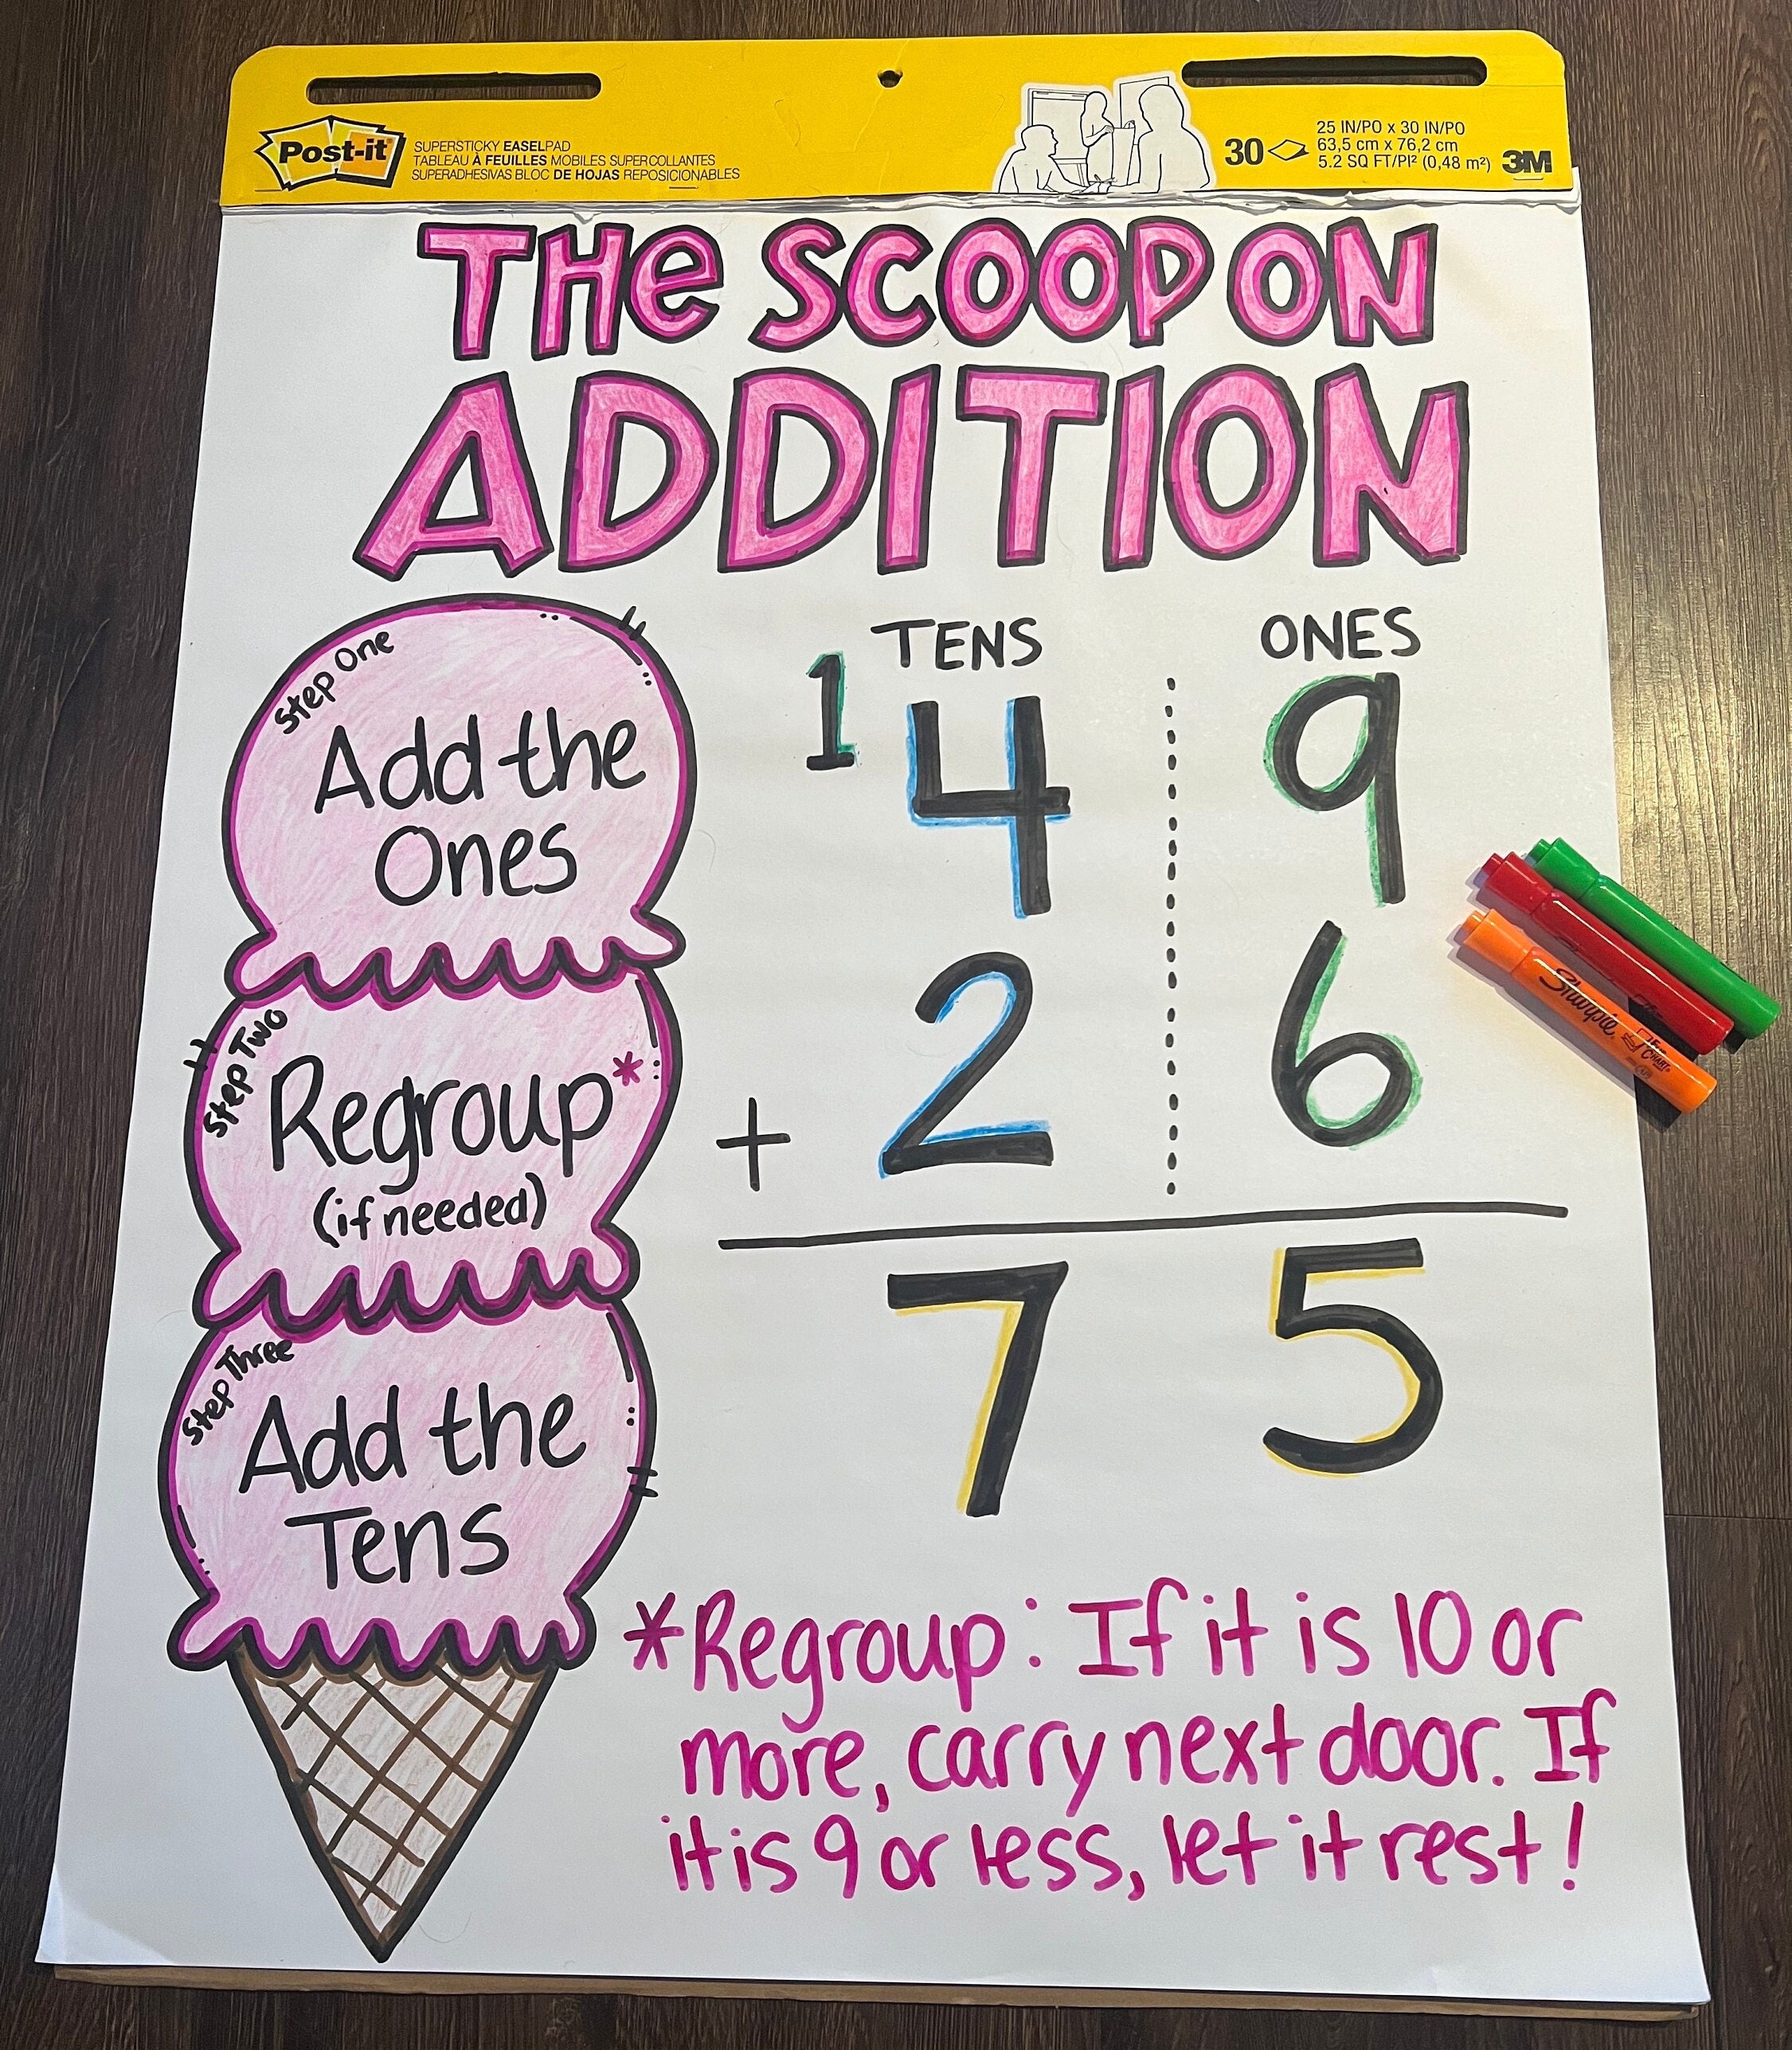 Post-it
SUPERSTICKY EASELPAD
TABLEAU À FEUILLES MOBILES SUPERCOLLANTES
SUPERADHESIVAS BLOC DE HOJAS REPOSICIONABLES
30
25 IN/PO x 30 IN/PO
63,5 cm x 76,2 cm
5.2 SQ FT/PI² (0,48 m²)
3M
THe SCOOP ON
ADDITION
Step One
Add the
Ones
Step Two
Regroup*
(if needed)
Step Three
Add the
Tens
TENS ONES
1
4 9
+ 2 6
7 5
*Regroup: If it is 10 or
more, carry next door. If
it is 9 or less, let it rest!
Sharpie